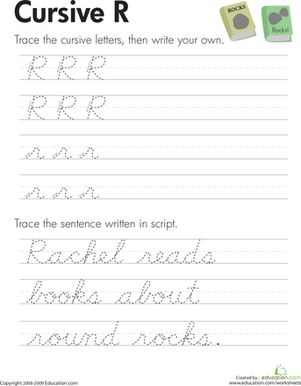 Cursive R
ROCKS
Rocks!
Trace the cursive letters, then write your own.
R R R
R R R
r r r
r r r
Trace the sentence written in script.
Rachel reads
books about
round rocks.
Copyright 2008-2009 Education.com
Created by :
education.com
www.education.com/worksheets